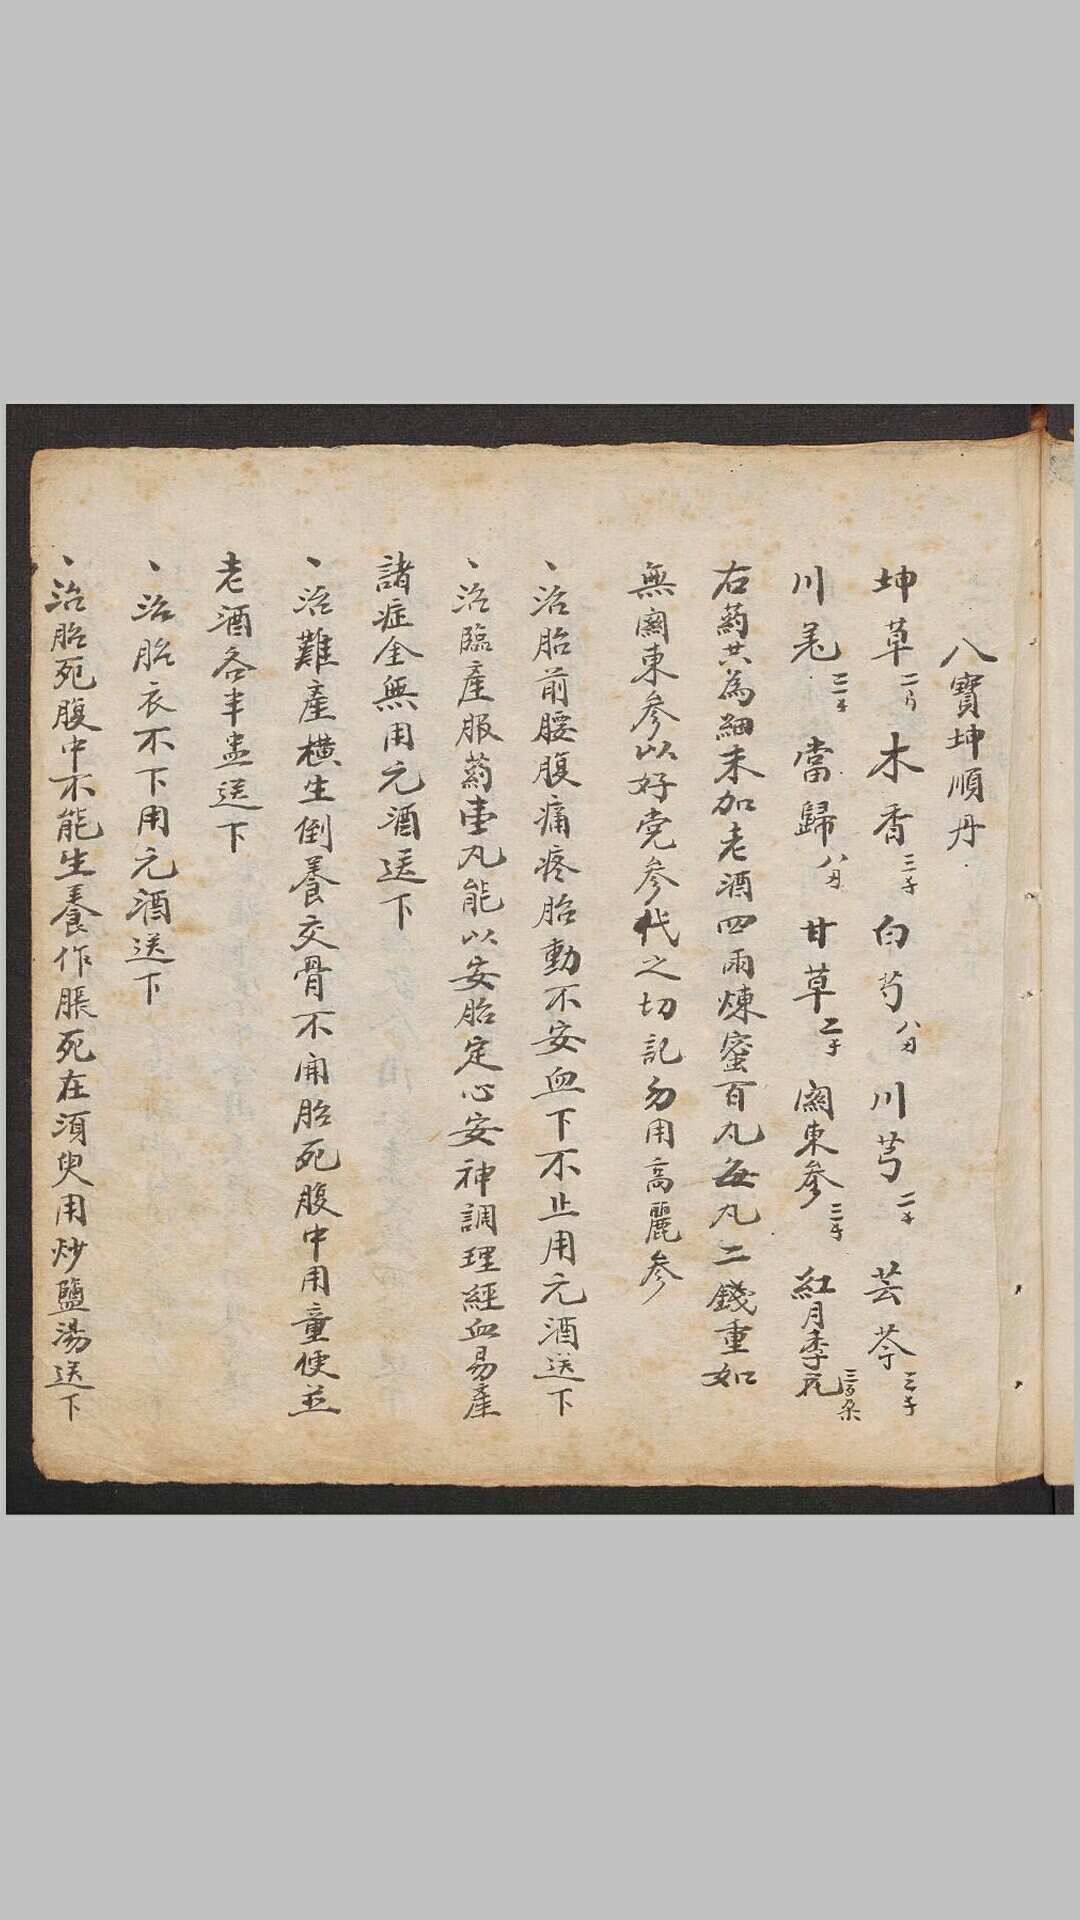 八寶坤順丹
坤草 木香三子 白芍 川芎二子 芸苓三子
川羌三子 當歸 甘草二子 關東參三子 紅月季花
右葯共為細末加老酒四兩煉蜜百丸每丸二錢重如
無關東參以好党參代之切記勿用高麗參
、治胎前腰腹痛疼胎動不安血下不止用元酒送下
、治臨產服葯壹丸能以安胎定心安神調理經血易產
諸症全無用元酒送下
、治難產橫生倒養交骨不開胎死腹中用童便並
老酒各半盅送下
、治胎衣不下用元酒送下
、治胎死腹中不能生養作脹死在須臾用炒鹽湯送下